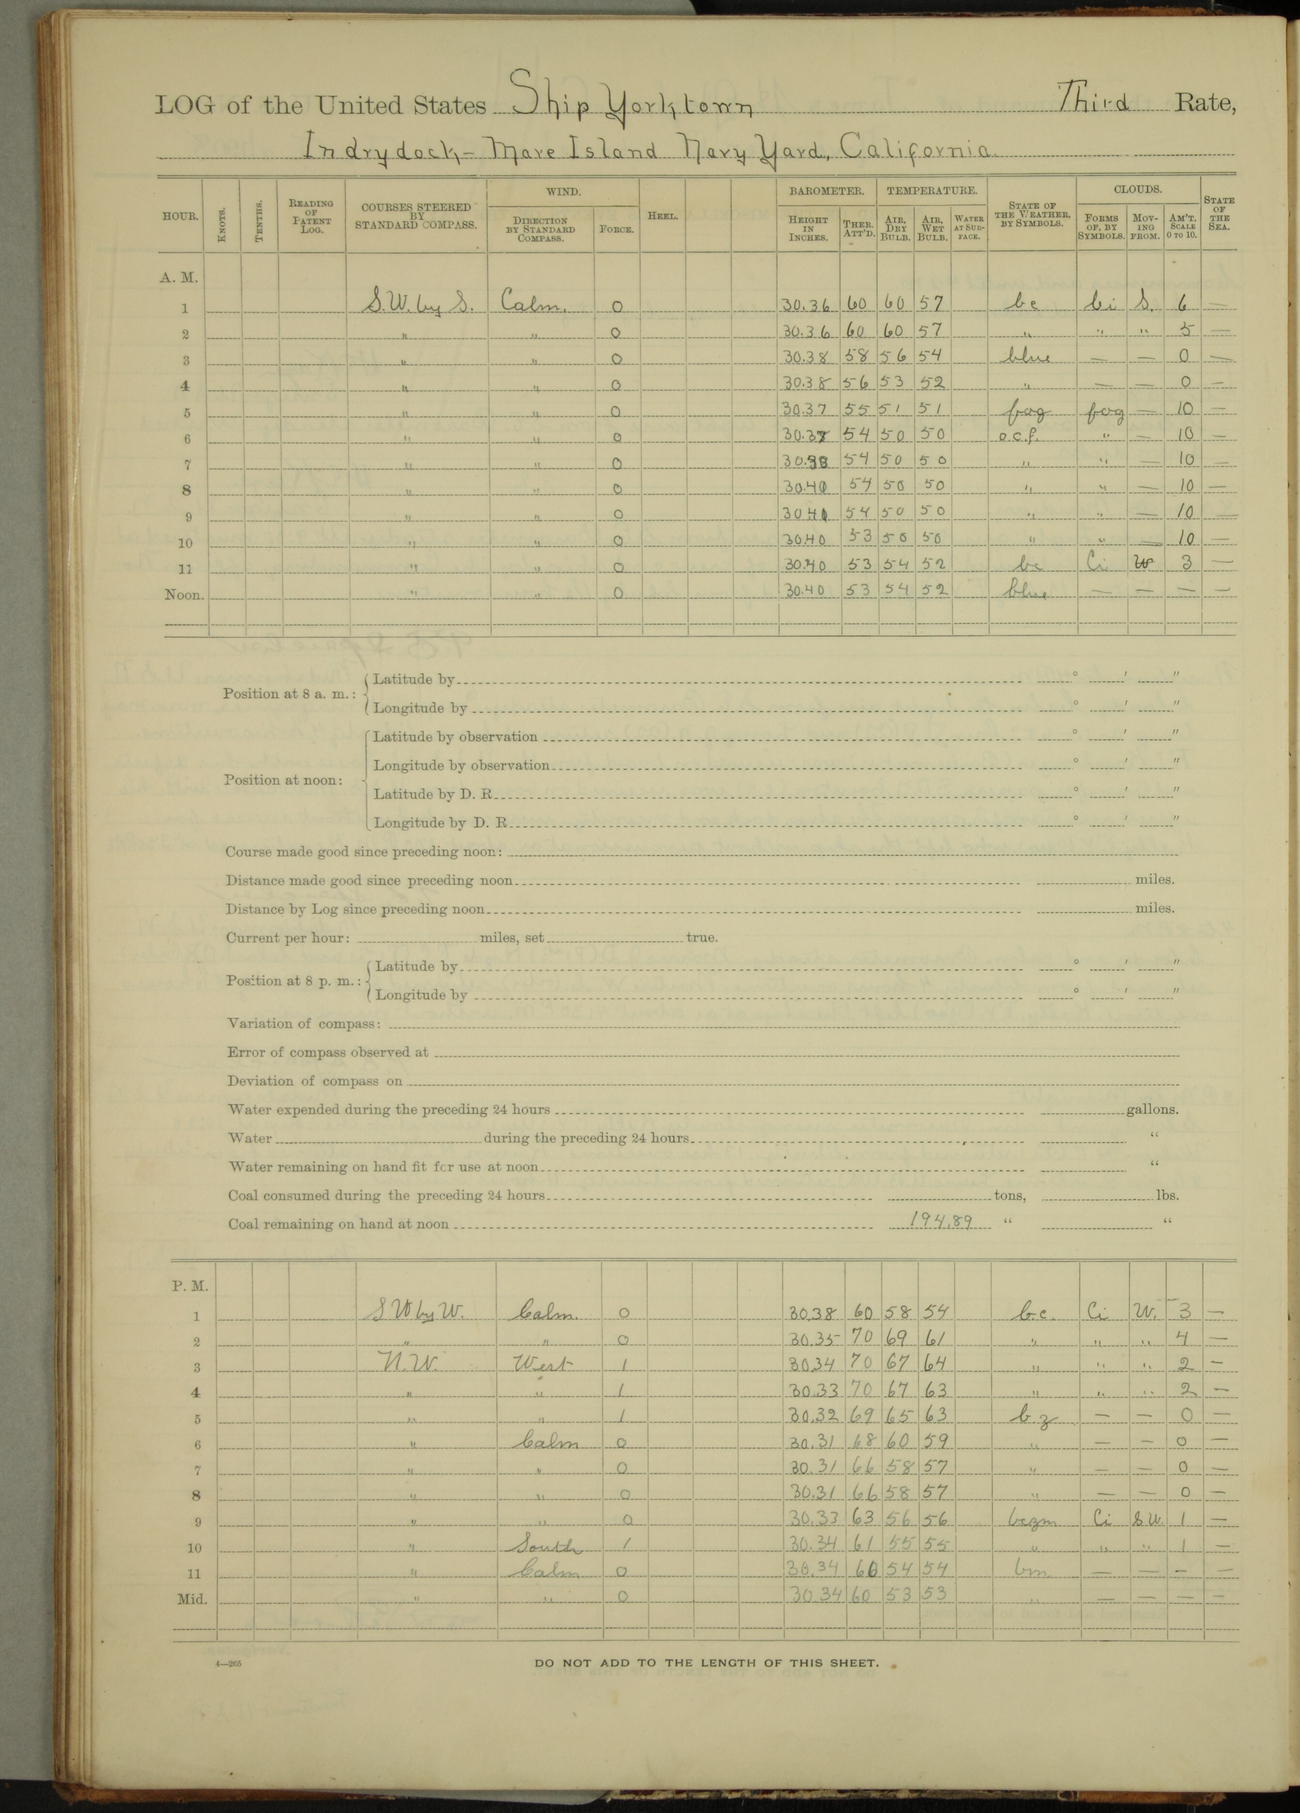 LOG of the United States Ship Yorktown Third Rate,
In dry dock - Mare Island Navy Yard, California
HOUR. KNOTS. TENTHS. READING OF PATENT LOG. COURSES STEERED BY STANDARD COMPASS. WIND. DIRECTION BY STANDARD COMPASS. FORCE. HEEL. BAROMETER. HEIGHT IN INCHES. THER. ATT'D. TEMPERATURE. AIR, DRY BULB. AIR, WET BULB. WATER AT SURFACE. STATE OF THE WEATHER, BY SYMBOLS. CLOUDS. FORMS OF, BY SYMBOLS. MOVING FROM. AM'T. SCALE 0 TO 10. STATE OF THE SEA.
A. M.
1 S.W. by S. Calm. 0 30.36 60 60 57 bc Ci S. 6 —
2 " " 0 30.36 60 60 57 " " " 5 —
3 " " 0 30.38 58 56 54 blue — — 0 —
4 " " 0 30.38 56 53 52 " — — 0 —
5 " " 0 30.37 55 51 51 fog fog — 10 —
6 " " 0 30.38 54 50 50 o.c.f. " — 10 —
7 " " 0 30.38 54 50 50 " " — 10 —
8 " " 0 30.40 54 50 50 " " — 10 —
9 " " 0 30.40 54 50 50 " " — 10 —
10 " " 0 30.40 53 50 50 " " — 10 —
11 " " 0 30.40 53 54 52 bc Ci W 3 —
Noon. " " 0 30.40 53 54 52 blue — — — —
Position at 8 a. m.: Latitude by ° ' "
Longitude by ° ' "
Position at noon: Latitude by observation ° ' "
Longitude by observation ° ' "
Latitude by D. R. ° ' "
Longitude by D. R. ° ' "
Course made good since preceding noon:
Distance made good since preceding noon miles.
Distance by Log since preceding noon miles.
Current per hour: miles, set true.
Position at 8 p. m.: Latitude by ° ' "
Longitude by ° ' "
Variation of compass:
Error of compass observed at
Deviation of compass on
Water expended during the preceding 24 hours gallons.
Water during the preceding 24 hours "
Water remaining on hand fit for use at noon "
Coal consumed during the preceding 24 hours tons, lbs.
Coal remaining on hand at noon 194.89 " "
P. M.
1 S W by W. Calm. 0 30.38 60 58 54 b.c. Ci W. 3 —
2 " " 0 30.35 70 69 61 " " " 4 —
3 N.W. West 1 30.34 70 67 64 " " " 2 —
4 " " 1 30.33 70 67 63 " " " 2 —
5 " " 1 30.32 69 65 63 b.z — — 0 —
6 " Calm 0 30.31 68 60 59 " — — 0 —
7 " " 0 30.31 66 58 57 " — — 0 —
8 " " 0 30.31 66 58 57 " — — 0 —
9 " " 0 30.33 63 56 56 bczm Ci S W. 1 —
10 " South 1 30.34 61 55 55 " " " 1 —
11 " Calm 0 30.34 60 54 54 bm — — — —
Mid. " " 0 30.34 60 53 53 " — — — —
4—265
DO NOT ADD TO THE LENGTH OF THIS SHEET.